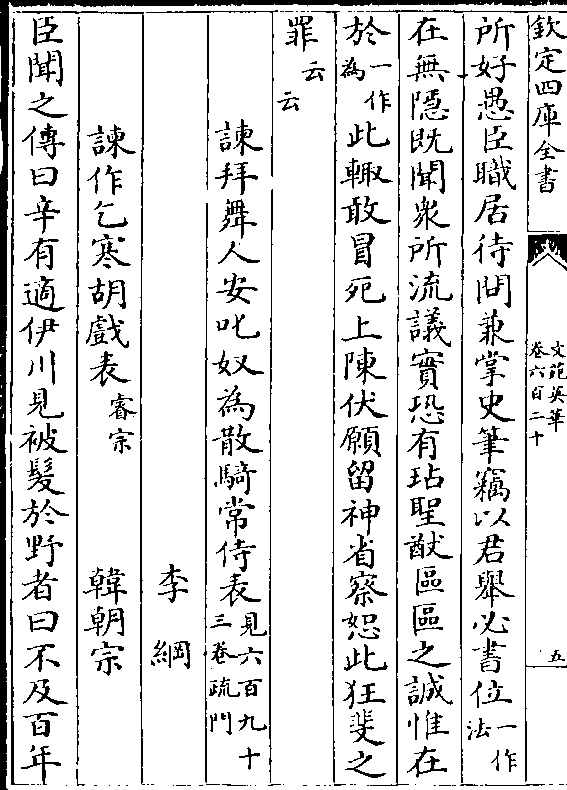 欽定四庫全書
文苑英華
卷六百二十
五
所好愚臣職居待問兼掌史筆竊以君舉必書位一作法
在無隱既聞衆所流議實恐有玷聖猷區區之誠惟在
於一作為此輙敢冒死上陳伏願留神省察恕此狂斐之
罪云云
諫拜舞人安叱奴為散騎常侍表見六百九十三卷疏門
李綱
諫作乞寒胡戲表睿宗 韓朝宗
臣聞之傳曰辛有適伊川見被髮於野者曰不及百年